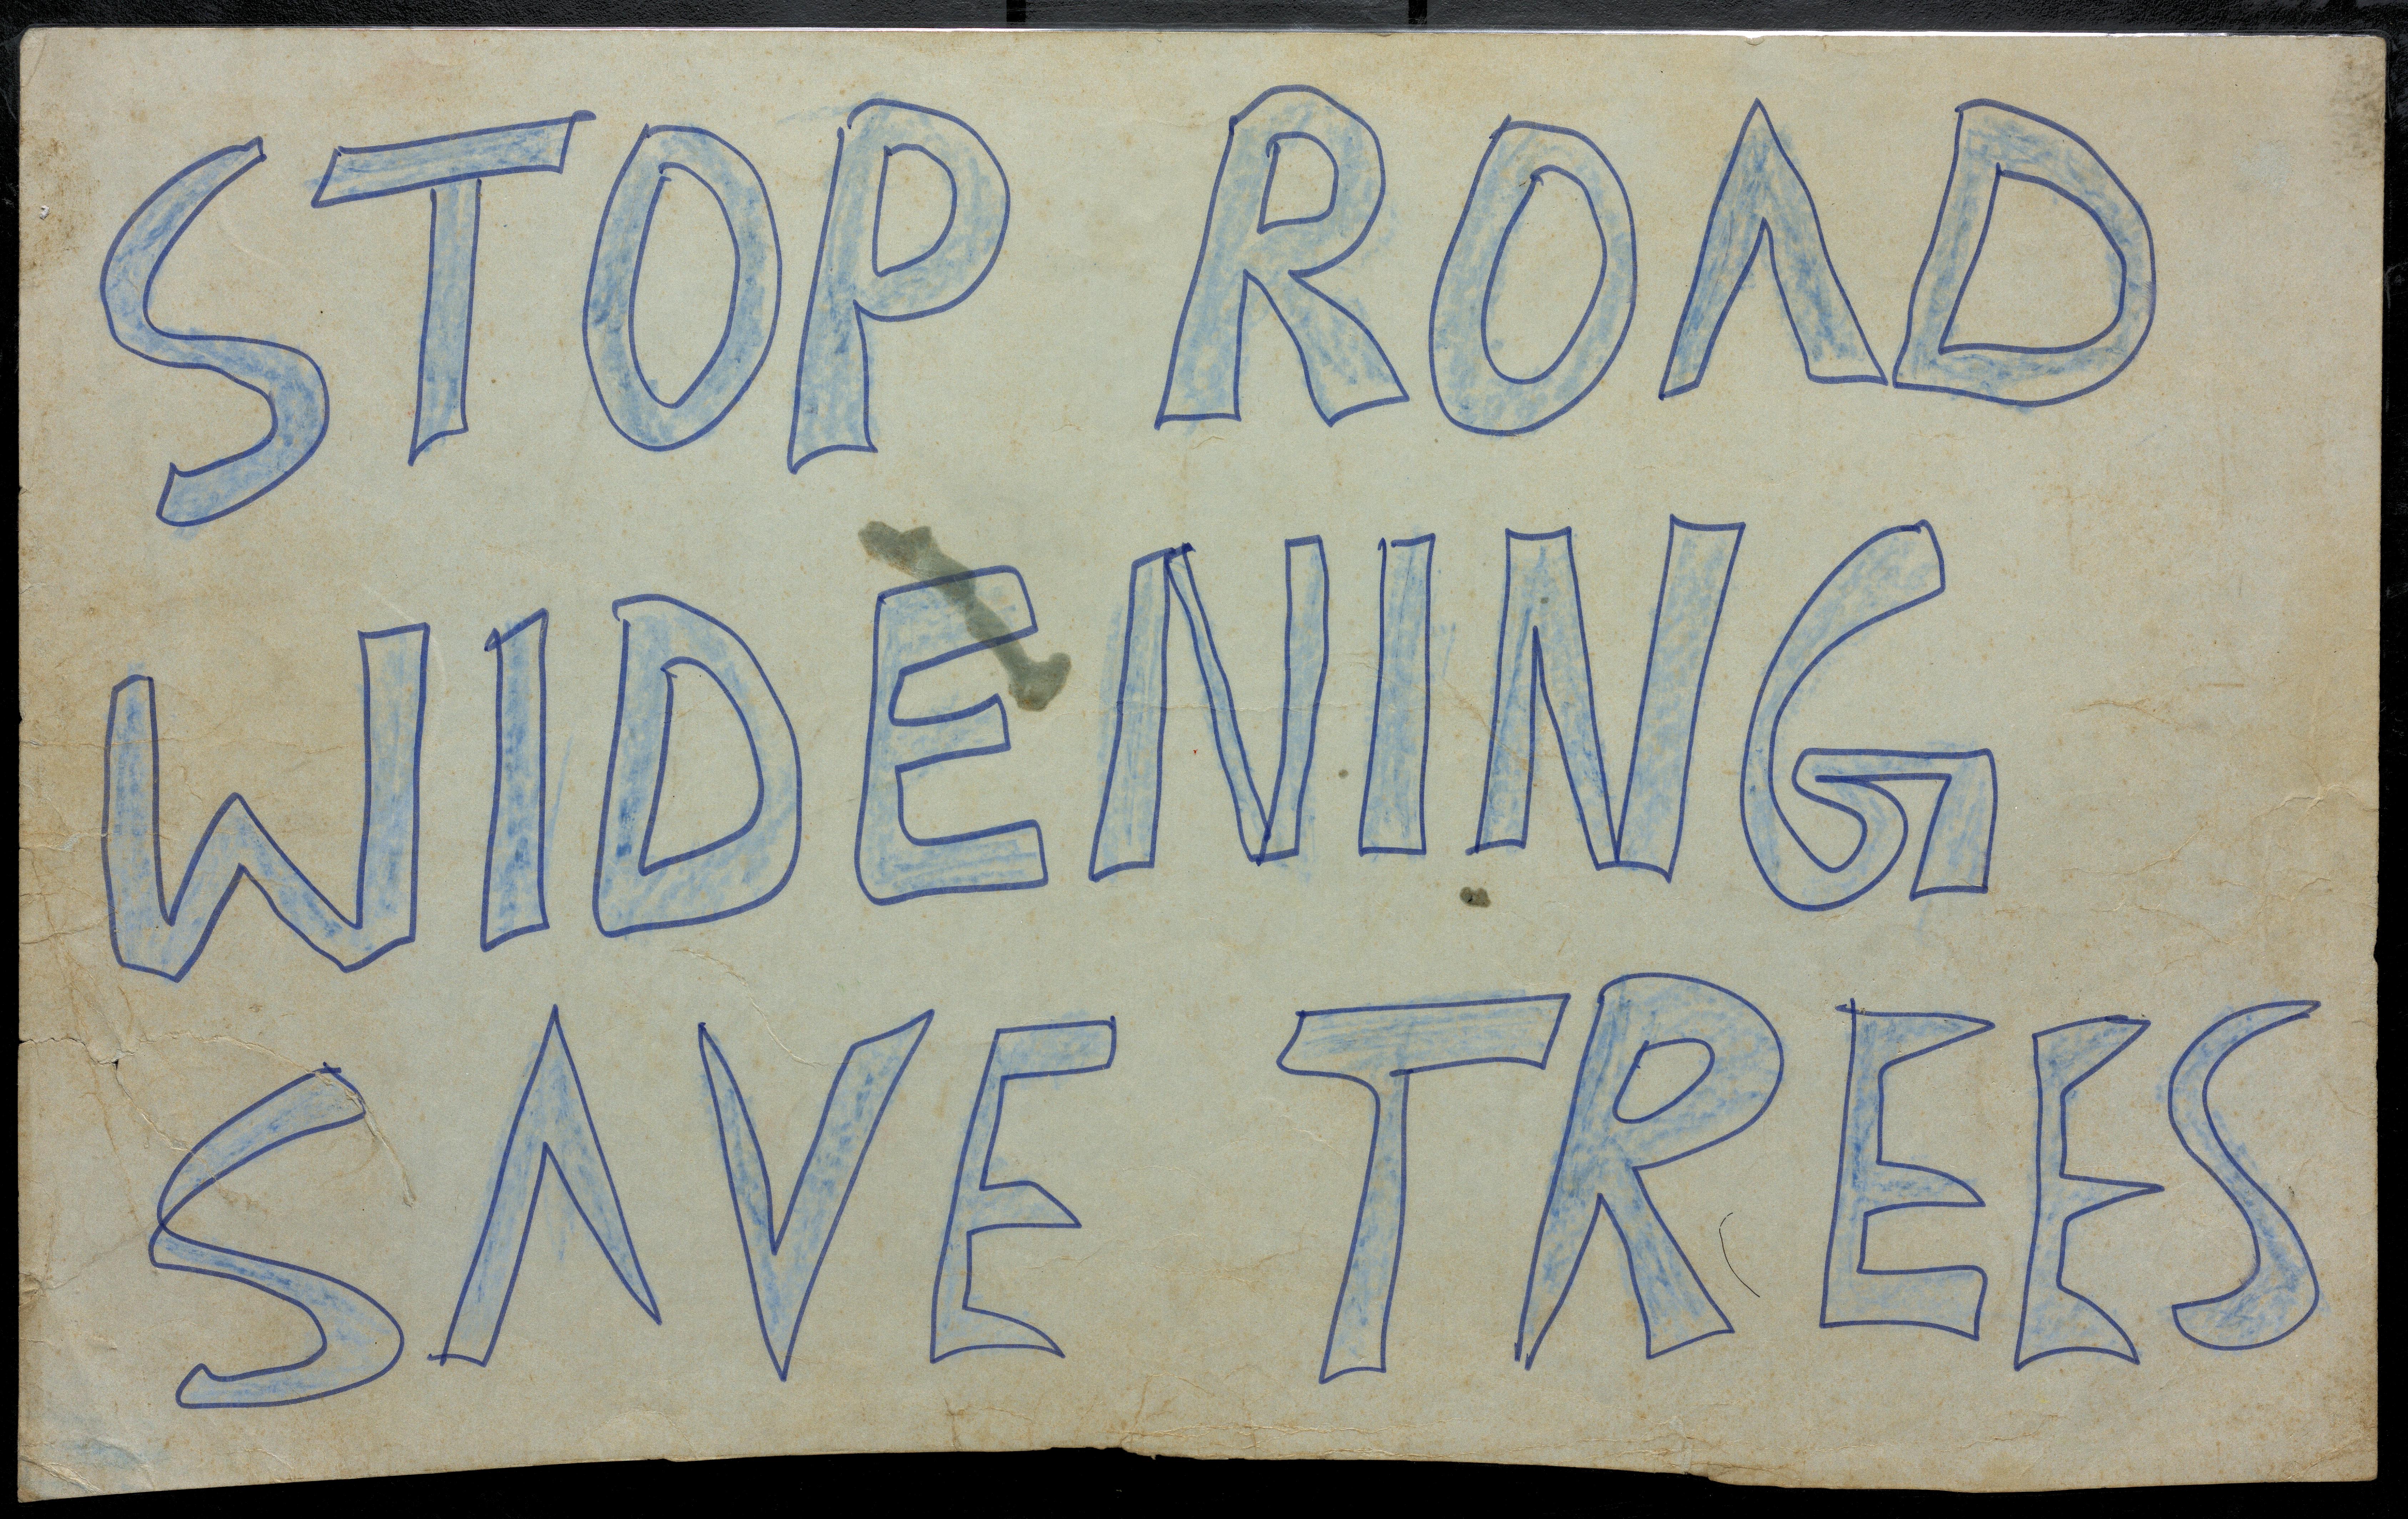 STOP ROAD
WIDENING
SAVE TREES